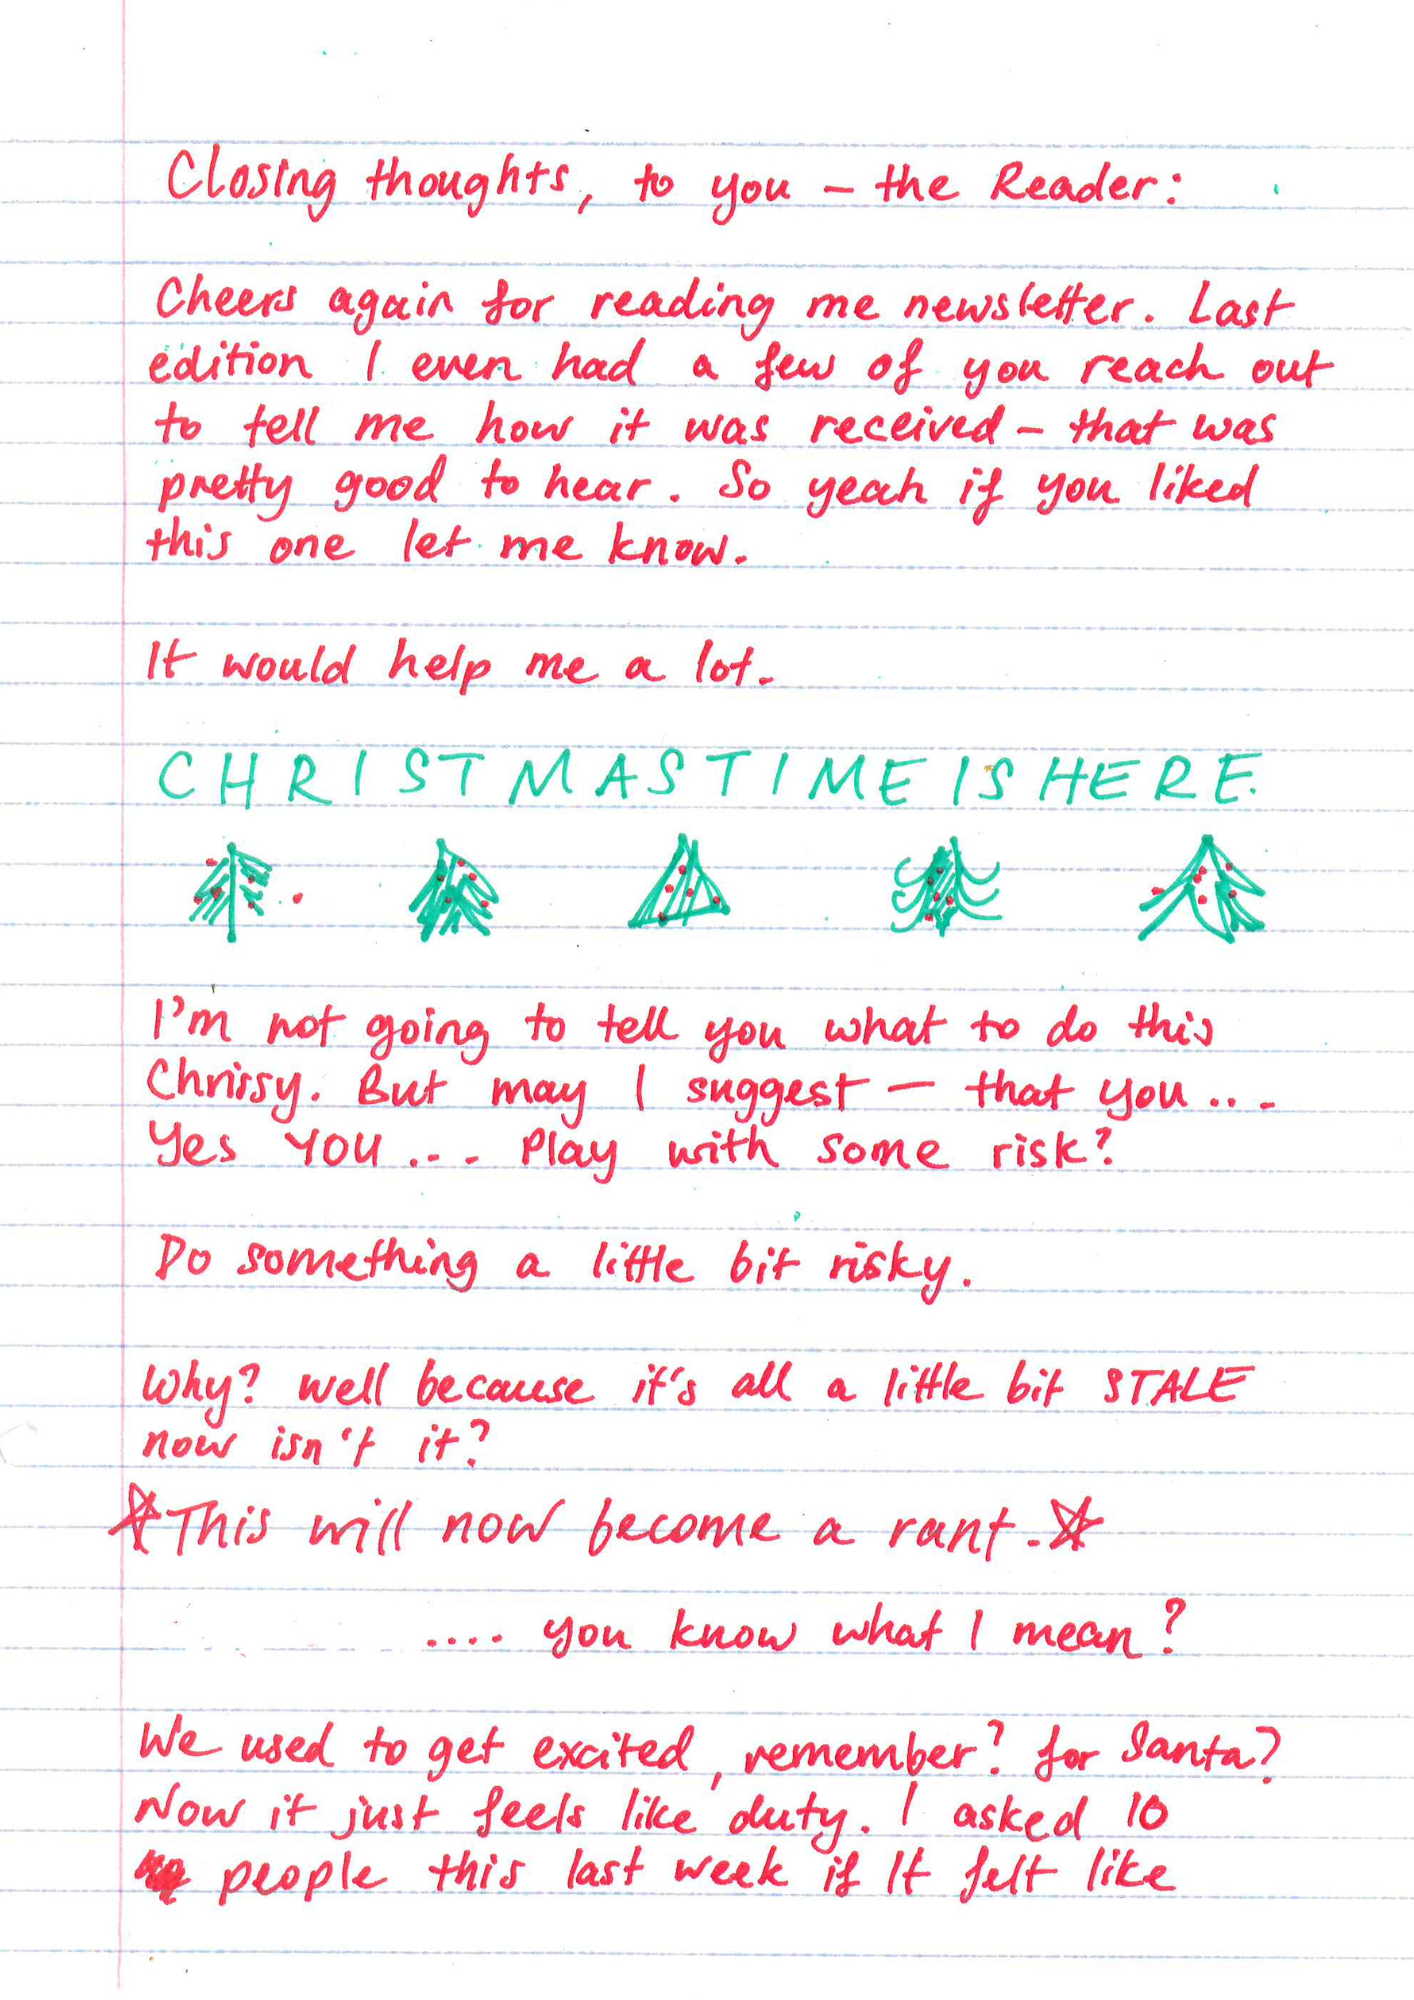 Closing thoughts, to you - the Reader:
Cheers again for reading me newsletter. Last
edition I even had a few of you reach out
to tell me how it was received - that was
pretty good to hear. So yeah if you liked
this one let me know.
It would help me a lot.
CHRISTMAS TIME IS HERE.
I'm not going to tell you what to do this
Chrissy. But may I suggest - that you ...
Yes YOU ... Play with some risk?
Do something a little bit risky.
Why? Well because it's all a little bit STALE
now isn't it?
☆This will now become a rant.☆
.... you know what I mean?
We used to get excited, remember? for Santa?
Now it just feels like duty. I asked 10
people this last week if It felt like